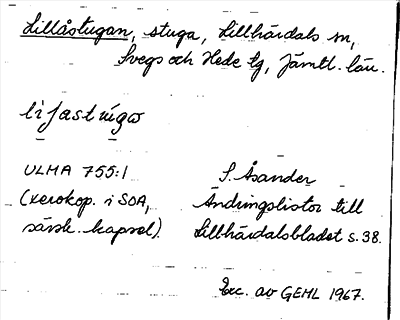 Lillåstugan, stuga, Lillhärdals sn,
Svegs och Hede tg, Jämtl. län.
lijastúgɷ
ULMA 755:1
(xerokop. i SOA,
särsk. kapsel).
S. Åsander
Ändringslistor till
Lillhärdalsbladet s. 38.
Exc. av GEHL 1967.